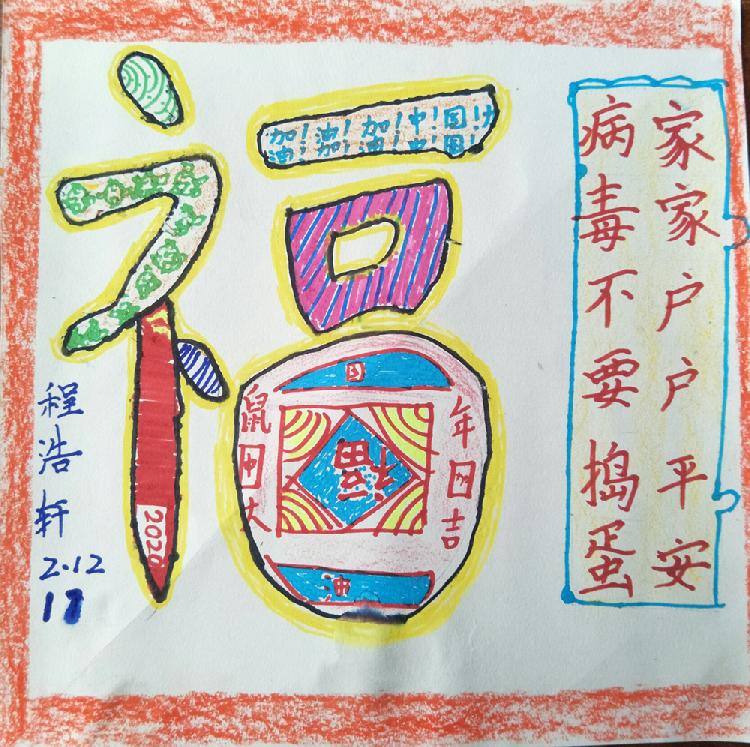 家家户户平安
病毒不要捣蛋
福
加！油！加！中！国！
油！加！油！中！国！
国
鼠年
中国
大吉
福
油
2020
程浩轩
2.12